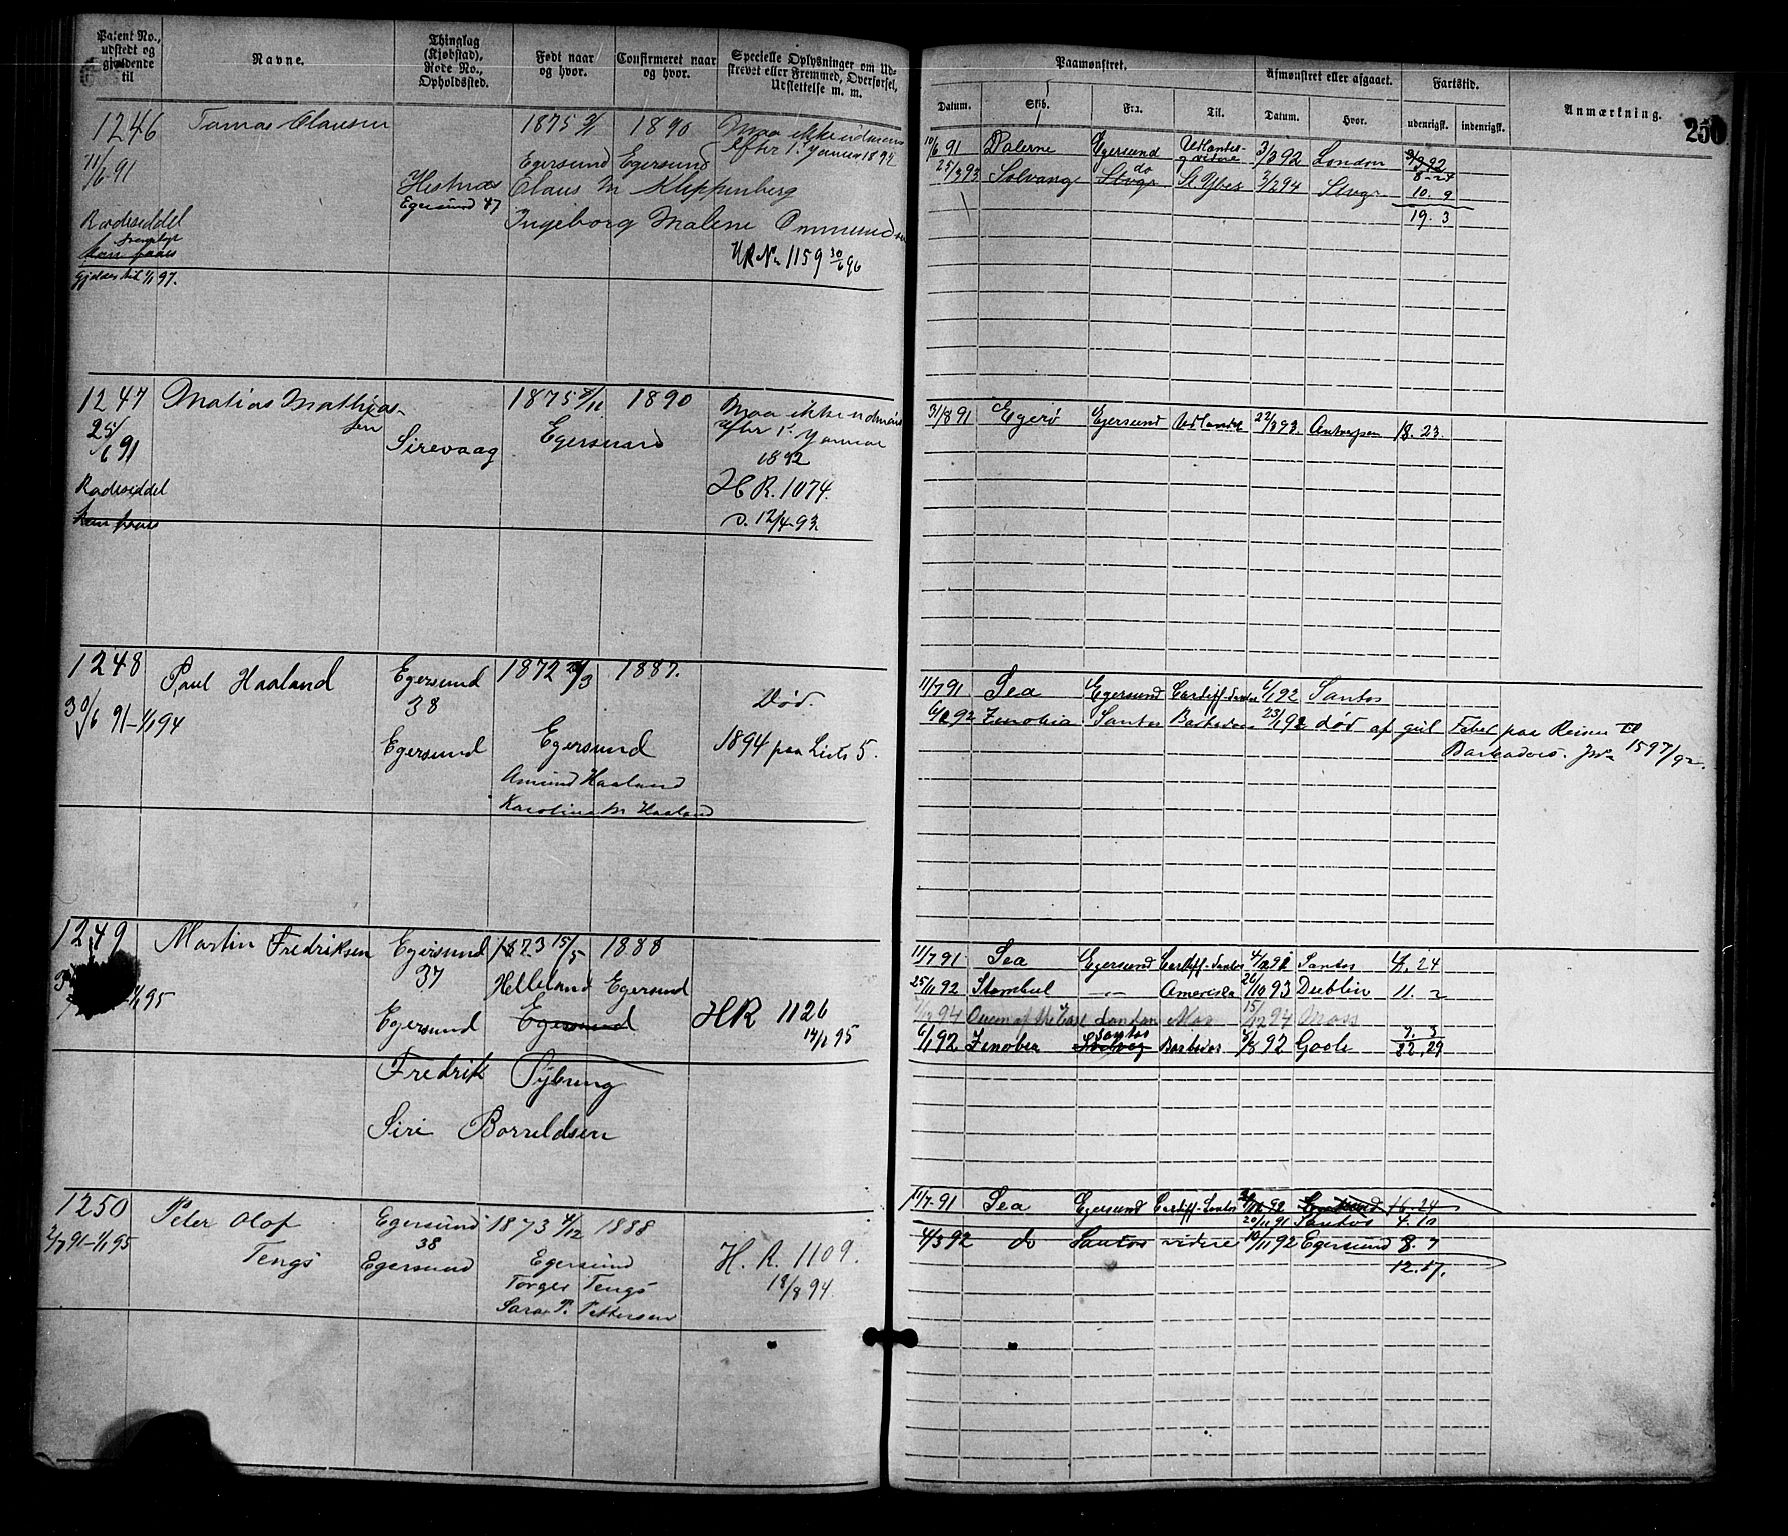 Patent No., udstedt og gjældende til
Navne.
Thinglag (Kjøbstad), Rode No., Opholdssted.
Født naar og hvor.
Confirmeret naar og hvor.
Specielle Oplysninger om Udskrevet eller Fremmed, Overførsel, Udslettelse m. m.
Paamønstret.
Datum.
Skib.
Fra.
Til.
Afmønstret eller afgaaet.
Datum.
Hvor.
Fartstid.
udenrigsk.
indenrigsk.
Anmærkning.
250
1246 Tomas Clausen 1875 1890 Maa ikke udmøns
efter 1. Januar 1894
11/6 91 Egersund Egersund
Hestnæs Claus M Klippenberg
Egersund 47
Rodeseddel Ingeborg Malene Ommundsen
fremlagt
kan faaes HR No 1159 30/6 96
Gjeldes til 1/1 97.
10/6 91 Palerne Egersund Udlandet og videre 3/3 92 London
25/3 93 Solvang do Stvgr St Ybes 3/2 94 Stvgr 10. 9
19. 3
1247 Matias Mathiassen 1875 1890 Maa ikke udmøns
efter 1. Januar
25/6 91 Sirevaag Egersund
1892
Rodeseddel HR. 1074.
kan faaes d. 12/4 93.
31/8 91 Egerø Egersund Udlandet 22/3 93. Antverpen 18. 23.
1248 Paul Haaland Egersund 1872 1887.
38 Død.
30/6 91-1/1 94
Egersund Egersund 1894 paa Liste 5.
Amund Haaland
Karoline M Haaland
11/7 91 Sea Egersund Cardiff-Santos 6/1 92 Santos
6/1 92 Zenobia Santos Barbados 23/1 92 død af gul Feber paa Reisen til
Barbados. Jno 1597/92.
1249 Martin Fredriksen Egersund 1873 15/5 1888
37
1/1 95 Helleland Egersund
Egersund Egersund HR 1126
14/1 95
Fredrik Nybung
Siri Borreldsen
11/7 91 Sea Egersund Cardiff-Santos Santos 4. 24
25/11 92 Stambul -"- Amerika 26/10 93 Dublin 11. 2
94 Queen of the East London Mos 94 Moss
6/1 92 Zenobia Santos Barbados 92 Goole 7. 3
22. 29
1250 Peter Olof Tengs Egersund 1873 4/12 1888
38
2/7 91-1/1 95 Egersund Egersund H. R. 1109.
Torger Tengs 18/8 94.
Sara P. Pettersen
11/7 91 Sea Egersund Cardiff-Santos Egersund 16. 24
20/11 91 Santos 4. 10
4/3 92 do Santos videre 10/11 92 Egersund 8. 7
12. 17.